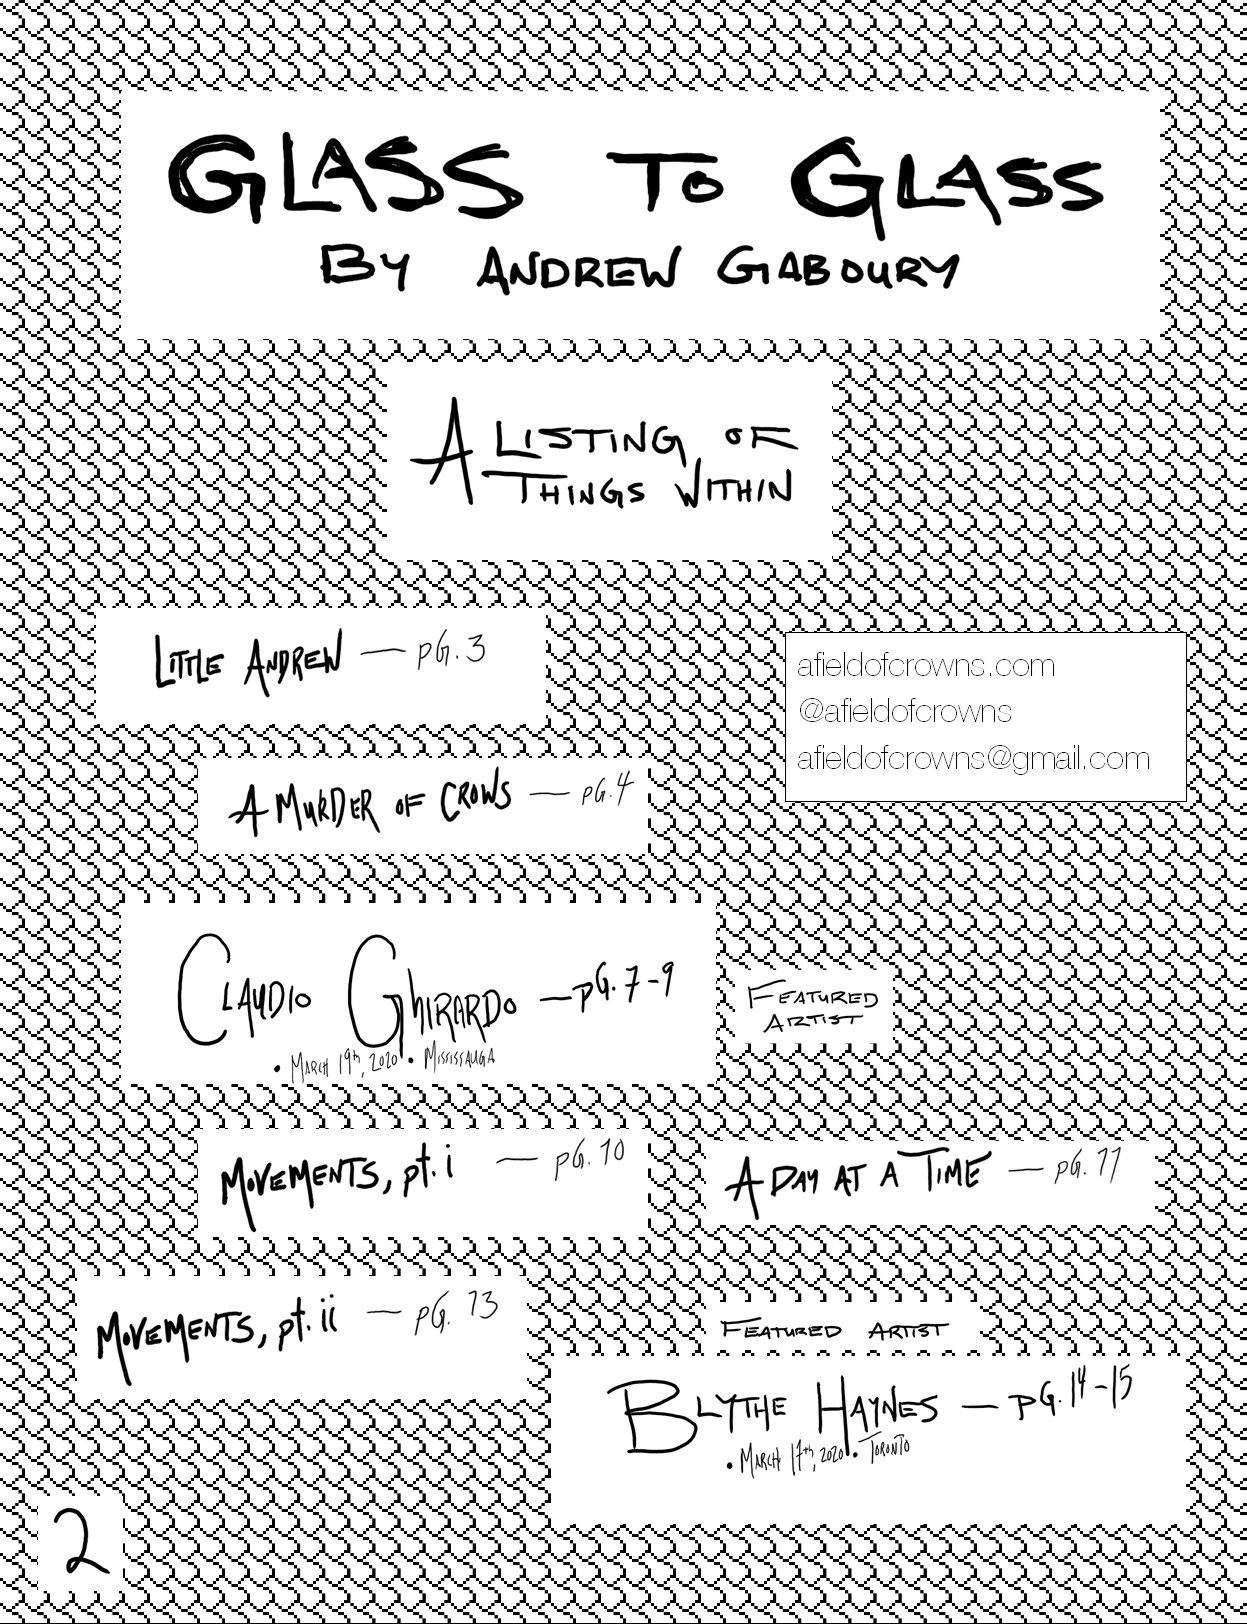 GLASS TO GLASS
BY ANDREW GABOURY
A LISTING OF
THINGS WITHIN
LITTLE ANDREW — pG. 3
afieldofcrowns.com
@afieldofcrowns
afieldofcrowns@gmail.com
A MURDER OF CROWS — pG. 4
CLAUDIO GHIRARDO — pG. 7-9
• MARCH 19th, 2020 • MISSISSAUGA
FEATURED
ARTIST
MOVEMENTS, pt. i — pG. 10
A DAY AT A TIME — pG. 11
MOVEMENTS, pt. ii — pG. 13
FEATURED ARTIST
BLYTHE HAYNES — pG. 14-15
• MARCH 17th, 2020 • TORONTO
2